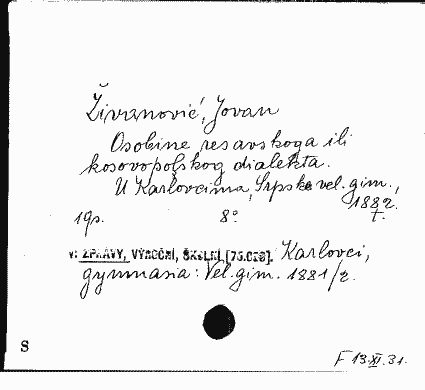 Živanović, Jovan
Osobine resavskoga ili
kosovopolskog dialekta.
U Karlovcima, Srpska vel. gim.,
1882.
19s. 8° t.
v: ZPRÁVY, VÝROČNÍ, ŠKOLNÍ, Karlovci,
gymnasia: Vel. gim. 1881/2.
S
F 13.XI.31.